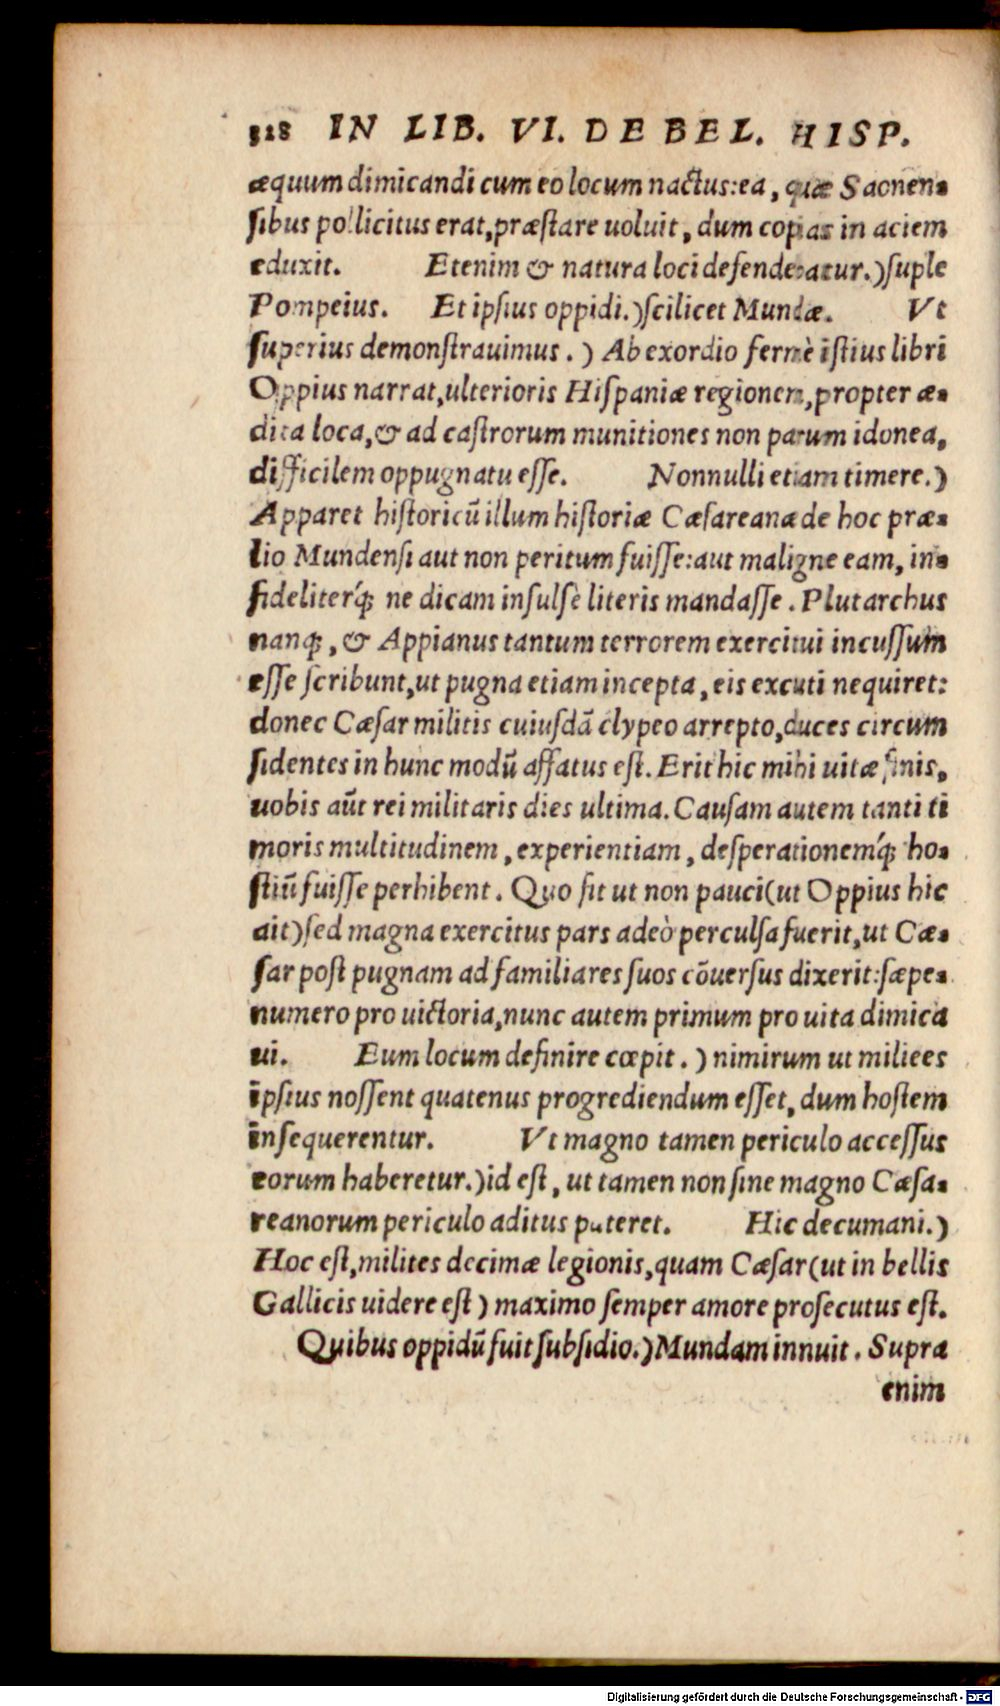 318 IN LIB. VI. DE BEL. HISP.
æquum dimicandi cum eo locum nactus: ea, quæ Saonen-
sibus pollicitus erat, præstare uoluit, dum copias in aciem
eduxit. Etenim & natura loci defenderatur.) suple
Pompeius. Et ipsius oppidi.) scilicet Mundæ. Vt
superius demonstrauimus.) Ab exordio fermè istius libri
Oppius narrat, ulterioris Hispaniæ regionem, propter æ-
dita loca, & ad castrorum munitiones non parum idonea,
difficilem oppugnatu esse. Nonnulli etiam timere.)
Apparet historicũ illum historiæ Cæsareanæ de hoc præ-
lio Mundensi aut non peritum fuisse: aut maligne eam, in-
fideliterq́; ne dicam insulsè literis mandasse. Plutarchus
nanq;, & Appianus tantum terrorem exercitui incussum
esse scribunt, ut pugna etiam incepta, eis excuti nequiret:
donec Cæsar militis cuiusdã clypeo arrepto, duces circum
sidentes in hunc modũ affatus est. Erit hic mihi uitæ finis,
uobis aũt rei militaris dies ultima. Causam autem tanti ti
moris multitudinem, experientiam, desperationemq́; ho-
stiũ fuisse perhibent. Quo fit ut non pauci (ut Oppius hic
ait) sed magna exercitus pars adeò perculsa fuerit, ut Cæ-
sar post pugnam ad familiares suos cõuersus dixerit: sæpe-
numero pro uictoria, nunc autem primum pro uita dimica
ui. Eum locum definire cœpit.) nimirum ut miliees
ipsius nossent quatenus progrediendum esset, dum hostem
insequerentur. Vt magno tamen periculo accessus
eorum haberetur.) id est, ut tamen non sine magno Cæsa-
reanorum periculo aditus pateret. Hic decumani.)
Hoc est, milites decimæ legionis, quam Cæsar (ut in bellis
Gallicis uidere est) maximo semper amore prosecutus est.
Quibus oppidũ fuit subsidio.) Mundam innuit. Supra
enim
Digitalisierung gefördert durch die Deutsche Forschungsgemeinschaft - DFG